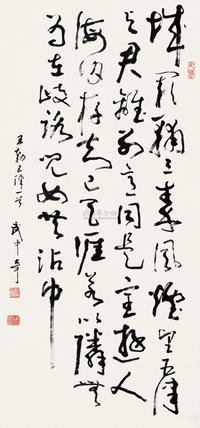 城闕輔三秦風煙望五津
与君離別意同是宦遊人
海内存知己天涯若比隣無
為在歧路兒女共沾巾
王勃五律一首 武中奇